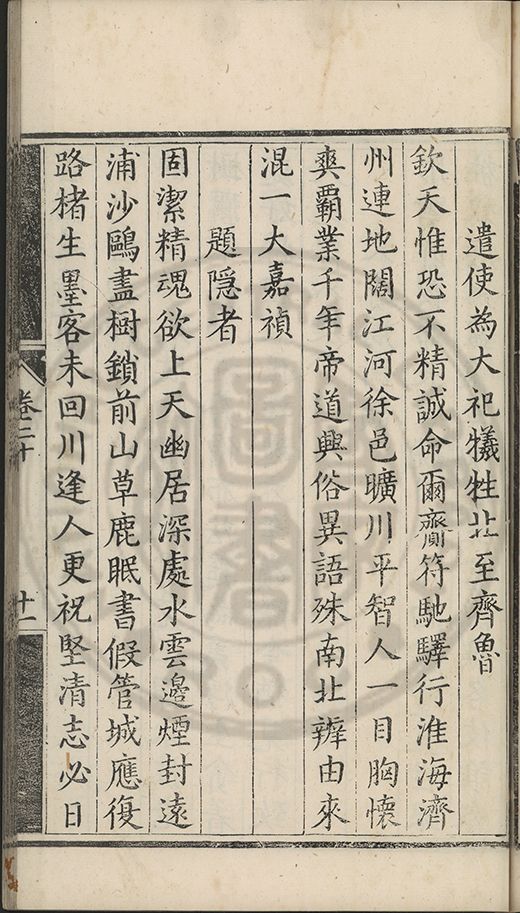 遣使為大祀犧牲北至齊魯
欽天惟恐不精誠命爾齎符馳驛行淮海濟
州連地闊江河徐邑曠川平智人一目胸懷
爽霸業千年帝道興俗異語殊南北辨由來
混一大嘉禎
題隠者
固潔精魂欲上天幽居深處水雲邊煙封遠
浦沙鷗盡樹鎖前山草鹿眠書假管城應復
路楮生墨客未回川逢人更祝堅清志必日
卷二十
十一